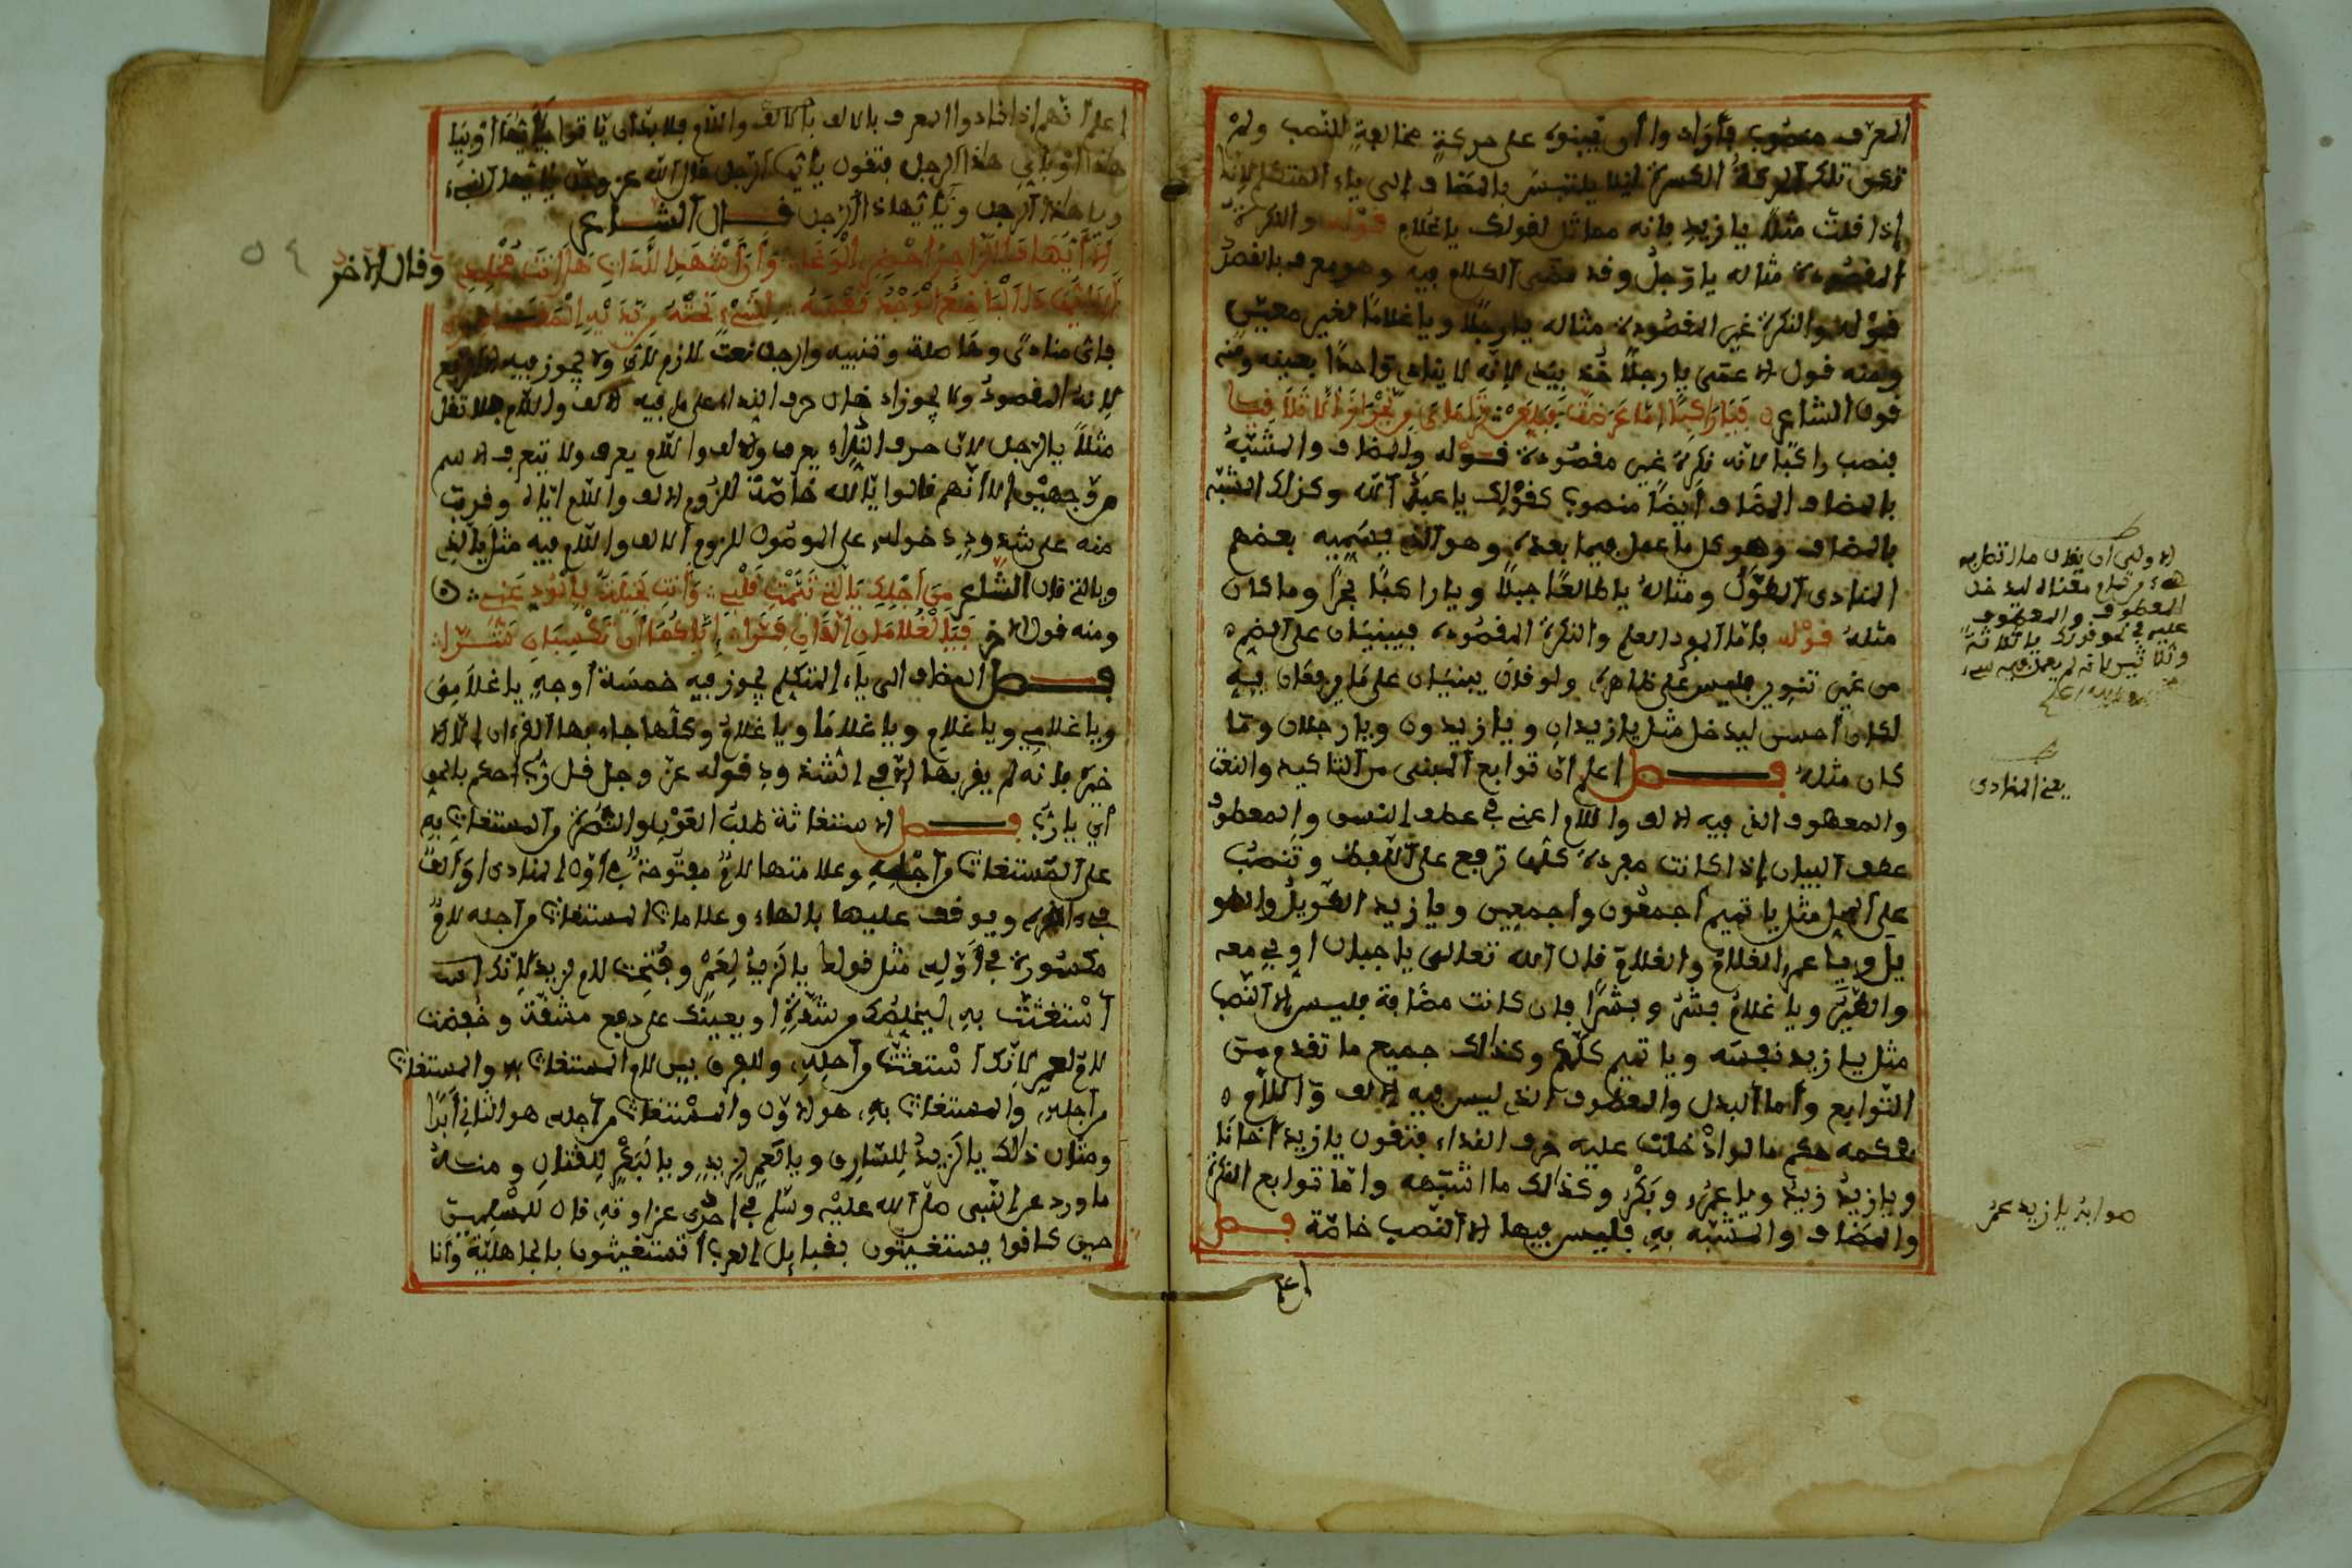 المعرف منصوب فأرادوا أن يبنوه على حركة مخالفة للنصب ولم
تكن تلك الحركة الكسرة لئلا يلتبس بالمضاف إلى ياء المتكلم لأنك
إذا قلت مثلا يا زيد فإنه مماثل لقولك يا غلام قوله والنكرة
المقصودة مثاله يا رجل وقد مضى الكلام فيه وهو معرف بالقصد
قوله والنكرة غير المقصودة مثاله يا رجلا ويا غلاما لغير معين
ومنه قول الاعمى يا رجلا خذ بيدي لأنه لا ينادي واحدا بعينه ومنه
قول الشاعر فيا راكبا إما عرضت فبلغن نداماي من نجران ألا تلاقيا
فنصب راكبا لأنه نكرة غير مقصودة قوله والمضاف والمشبه
بالمضاف المضاف أيضا منصوب كقولك يا عبد الله وكذلك المشبه
بالمضاف وهو كل ما عمل فيما بعده وهو الذي يسميه بعضهم
المنادى المطول ومثاله يا طالعا جبلا ويا راكبا بحرا وما كان
مثله قوله فأما المفرد العلم والنكرة المقصودة فيبنيان على الضم
من غير تنوين فليس على ظاهره ولو قال يبنيان على ما يرفعان به
لكان أحسن ليدخل مثل يا زيدان ويا زيدون ويا رجلان وما
كان مثله فصل اعلم ان توابع المبنى من التاكيد والنعت
والمعطوف الذي فيه الالف واللام اعني في عطف النسق والمعطوف
عطف البيان إذا كانت مفردة كلها ترفع على اللفظ وتنصب
على المحل مثل يا تميم أجمعون وأجمعين ويا زيد الطويل والطو
يل ويا عمر الغلام والغلام قال الله تعالى يا جبال أوبي معه
والطير ويا غلام بشر وبشرا فإن كانت مضافة فليس إلا النصب
مثل يا زيد نفسه ويا تميم كلهم وكذلك جميع ما تقدم من
التوابع وأما البدل والمعطوف الذي ليس فيه الالف واللام
فحكمه حكم ما لو ادخلت عليه حرف النداء فتقول يا زيد أخانا
ويا زيد زيد ويا عمر وبكر وكذلك ما اشبهه وأما توابع النكرة
والمضاف والمشبه به فليس فيها إلا النصب خاصة فصل
يعني المنادى
صوابه يا زيد عمر
اعلم
اعلم أنهم إذا نادوا المعرف بالالف واللام فلا بد أن يأتوا بأيها أو بيا
هذا أو بأي هذا الرجل فتقول يا أيها الرجل قال الله عز وجل يا أيها النبيء
ويا هذا الرجل ويا أيهاذا الرجل قال الشاعر
ألا أيهاذا الزاجري أحضر الوغا وأن أشهد اللذات هل أنت مخلدي وقال الاخر
فأي منادى وها صلة وتنبيه والرجل نعت لازم لأي ولا يجوز فيه إلا الرفع
لأنه المقصود ولا يجوز إدخال حرف النداء على ما فيه الالف واللام فلا تقل
مثلا يا الرجل لأن حرف النداء يعرف والالف واللام يعرف ولا يتعرف الاسم
من وجهين إلا أنهم قالوا يا الله خاصة للزوم الالف واللام اياه وقربت
منه على شذوذ دخوله على الموصول للزوم الالف واللام فيه مثل يا الذي
ويا التي قال الشاعر من أجلك يا التي تيمت قلبي وأنت بخيلة بالود عني
ومنه قول الاخر فيا الغلامان اللذان فرا إياكما أن تكسبان شرا
فصل المضاف الى ياء المتكلم يجوز فيه خمسة أوجه يا غلامي
ويا غلامي ويا غلام ويا غلاما ويا غلام وكلها جاء بها القرءان إلا الا
خير فإنه لم يقر بها إلا في الشذوذ قوله عز وجل قل رب احكم بالحق
أي يا رب فصل الاستغاثة طلب الغوث والنصرة والمستغاث به
على المستغاث من أجله وعلامتها لام مفتوحة في أول المنادى أو ألف
في اخره ويوقف عليها بالهاء وعلامة المستغاث من أجله لام
مكسورة في أوله مثل قولك يا لزيد لعمر وفتحت لام لزيد لأنك
استغثت به ليخلصك من شدة أو يعينك على دفع مشقة وخفضت
لام لعمر لأنك استغثت من أجله وللفرق بين لام المستغاث به والمستغاث
من أجله والمستغاث به هو الاول والمستغاث من أجله هو الثاني أبدا
ومثال ذلك يا لزيد للسارق ويا لعمر لزيد ويا لبكر للقتال ومنه
ما ورد عن النبي صلى الله عليه وسلم في إحدى غزاوته قال للمسلمين
حين كانوا يستغيثون بقبايل العرب أتستغيثون بالجاهلية وأنا
٥٤